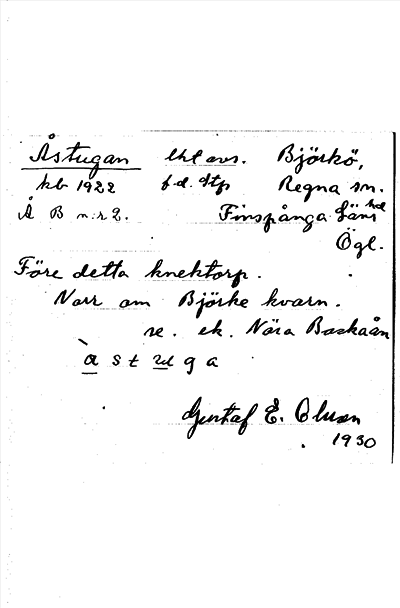 Åstugan lht avs. Björkö,
kb 1922 f.d. stp Regna sn.
Å B n:r 2. Finspånga läns hd
Ögl.
Före detta knektorp.
Norr om Björke kvarn.
se. ek. Nära Baskaån
å s t u g a
Gustaf E. Olsson
1930